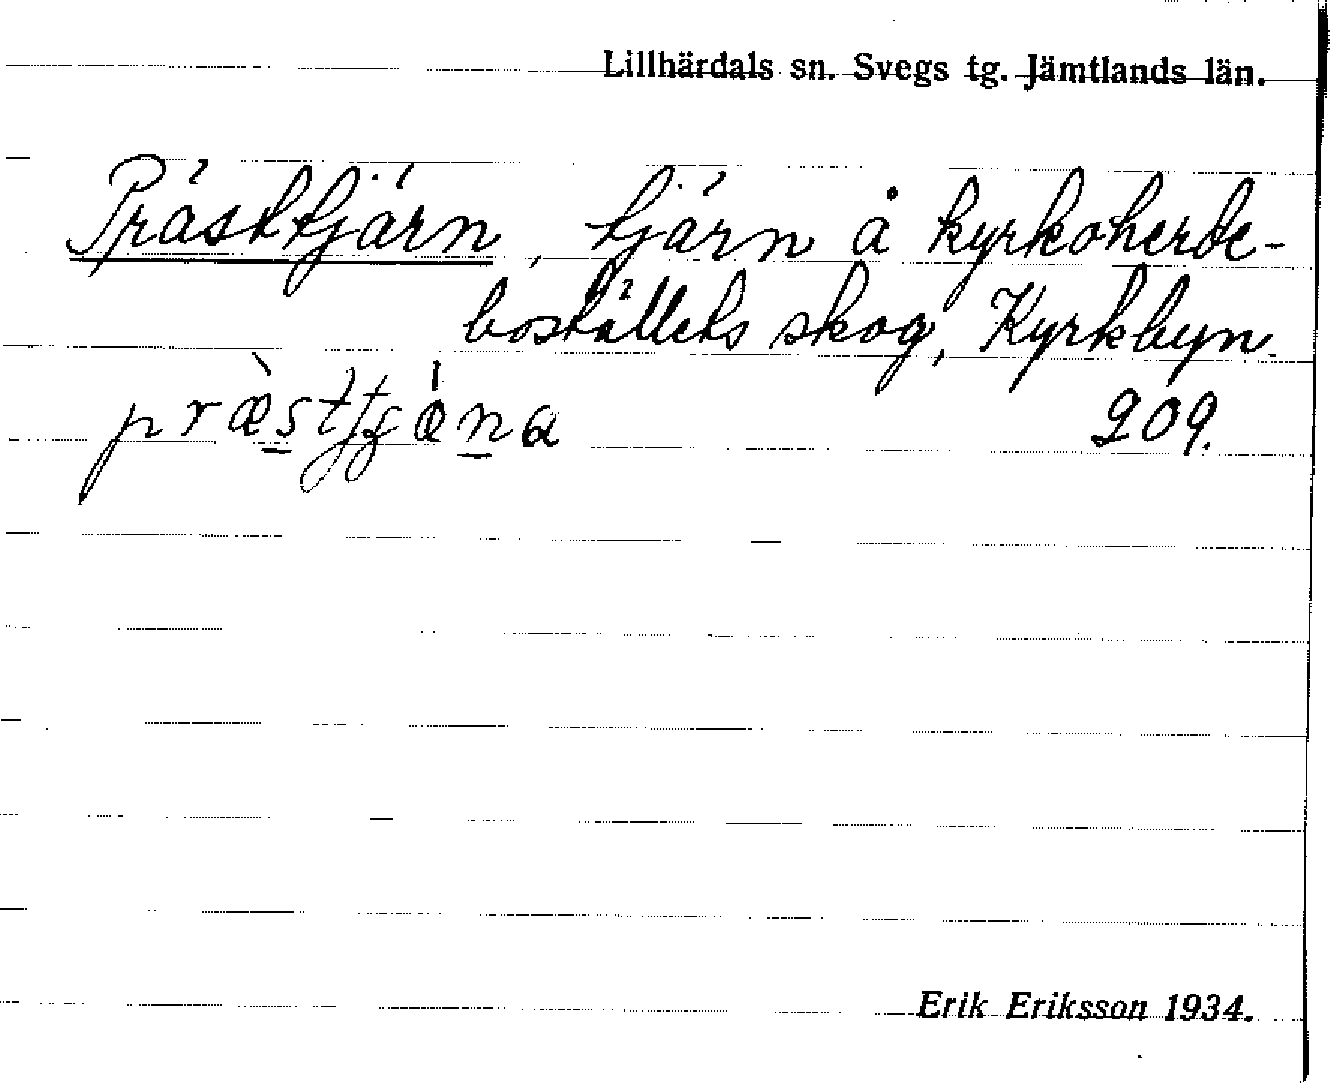 Lillhärdals sn. Svegs tg. Jämtlands län.
Prästtjärn, tjärn å kyrkoherde-
boställets skog, Kyrkbyn.
209.
Erik Eriksson 1934.